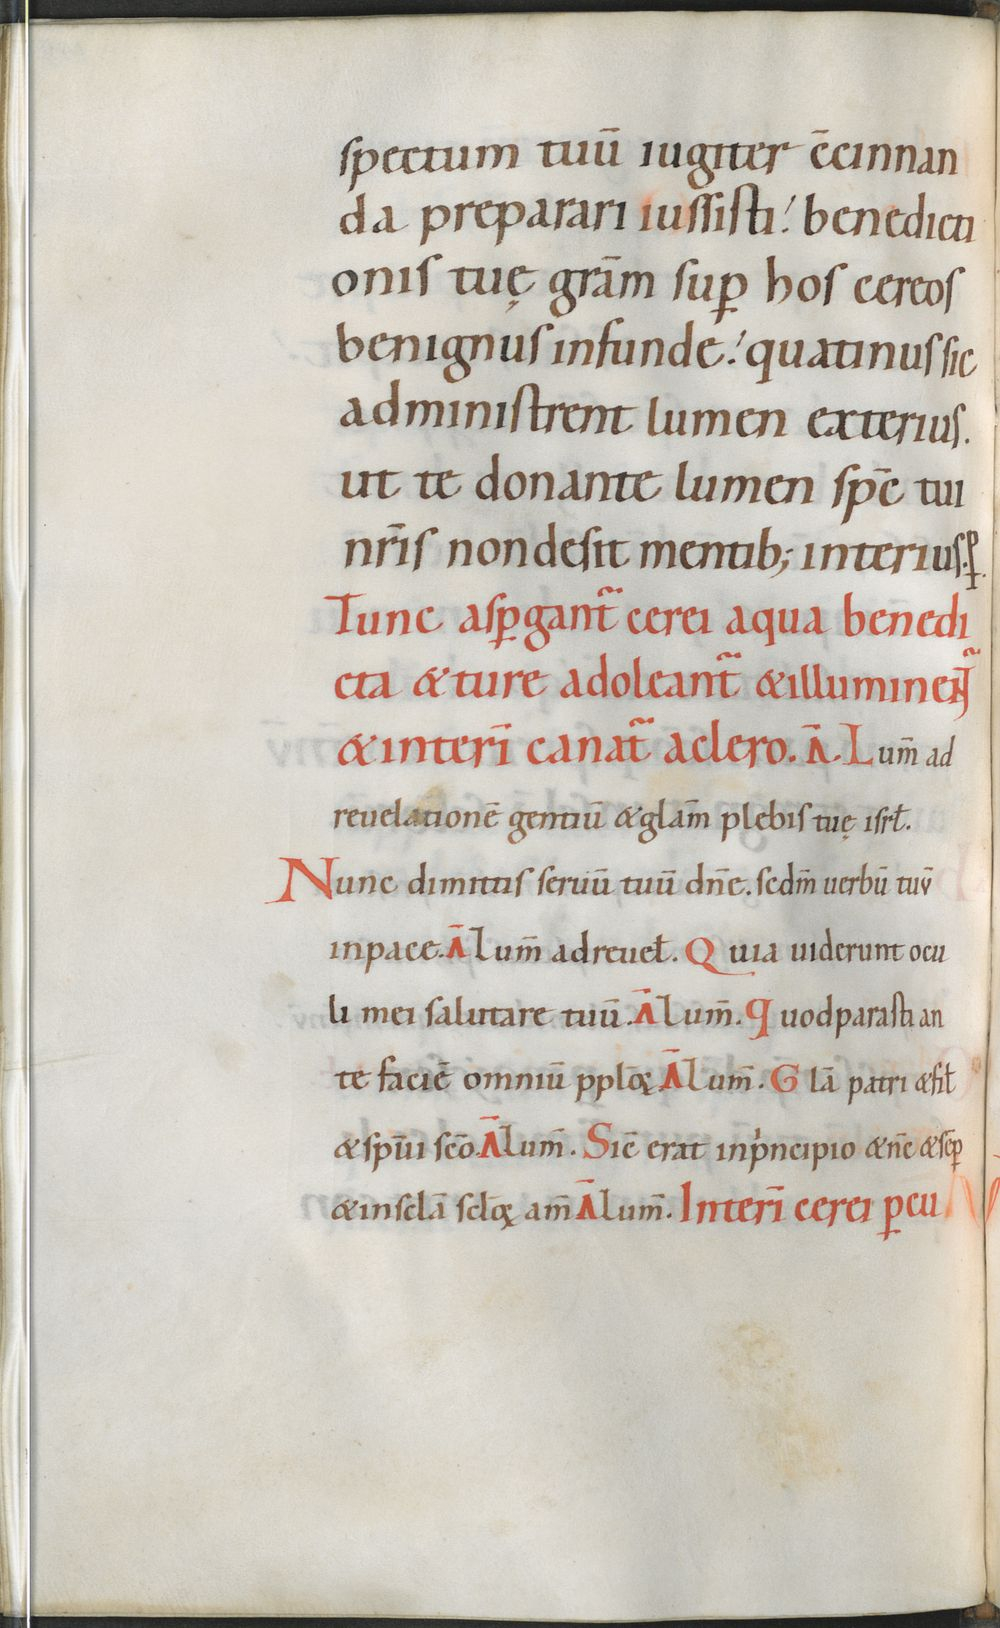 spectum tuū iugiter c̄cinnan
da preparari iussisti; benedicti
onis tuę grām sup̱ hos cereos
benignus infunde; quatinus sic
administrent lumen exterius.
ut te donante lumen spc̄ tui
nr̄is non desit mentib; interius. p̱
Tunc asp̱gant̃ cerei aqua benedi
cta &ture adoleant̃ &illuminent̃
&interī canat̃ aclero. Ā. Lum̄ ad
reuelationē gentiū &glām plebis tuę isrł.
Nunc dimittis seruū tuū dn̄e. scdm̄ uerbū tuū
inpace. Ā Lum̄ adreueł. Quia uiderunt ocu
li mei salutare tuū. Ā Lum̄. Quodparasti an
te faciē omniū pplōꝝ Ā Lum̄. Glā patri &fił
&sp̄ui scō. Ā Lum̄. Sic̄ erat inpͥncipio &nc̄ &sēp̱
&insclā sclōꝝ am̄ Ā Lum̄. Interī cerei p̱cu